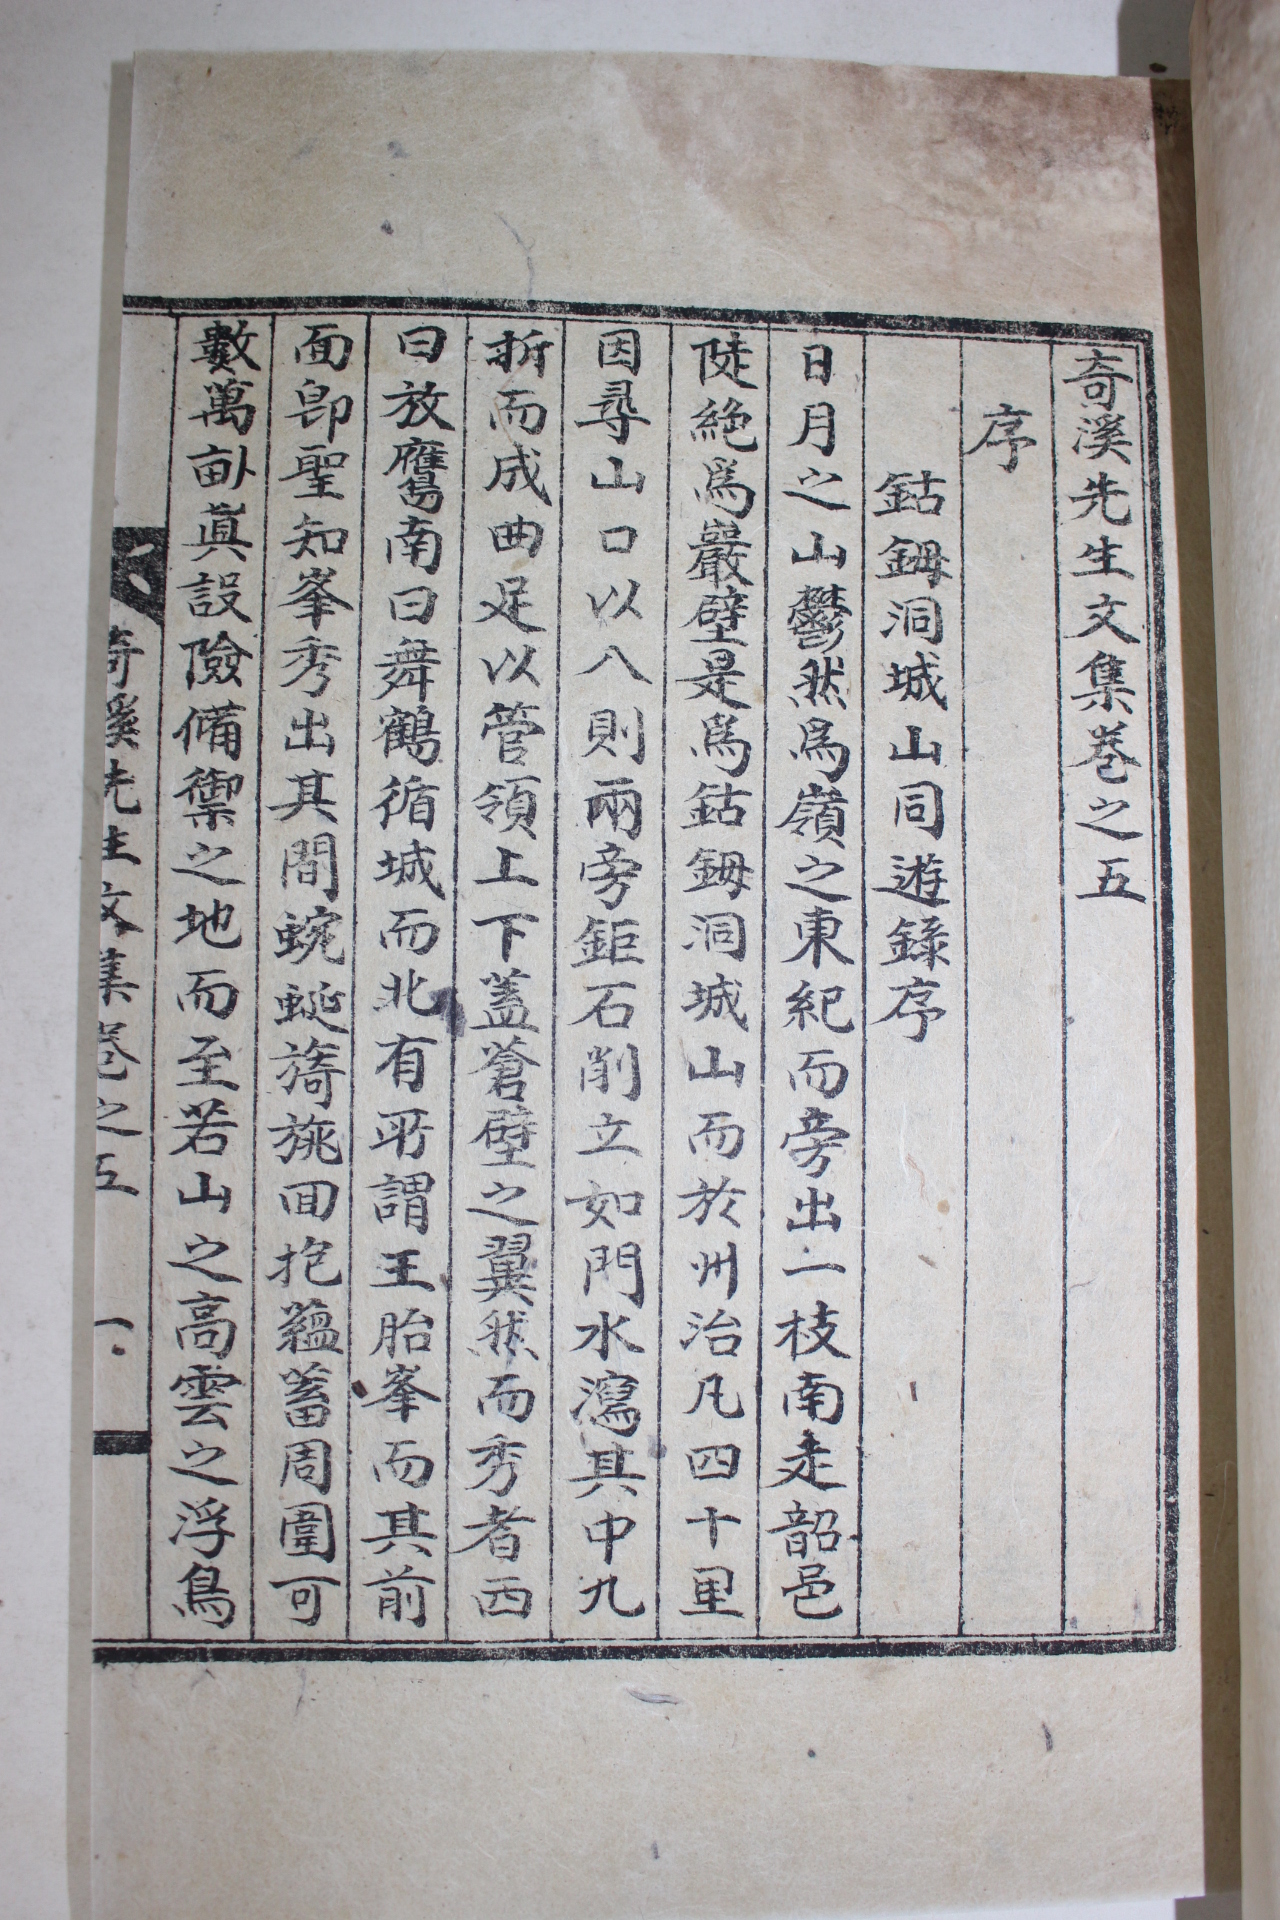 奇溪先生文集卷之五
序
鈷鉧洞城山同遊錄序
日月之山鬱然爲嶺之東紀而旁出一枝南走韶邑
陡絶爲巖壁是爲鈷鉧洞城山而於州治凡四十里
因尋山口以入則兩旁鉅石削立如門水瀉其中九
折而成曲足以管領上下蓋蒼壁之翼然而秀者西
曰放鷹南曰舞鶴循城而北有所謂王胎峯而其前
面卽聖知峯秀出其間蜿蜒旖旎回抱蘊蓄周圍可
數萬畝眞設險備禦之地而至若山之高雲之浮鳥
奇溪先生文集卷之五 一